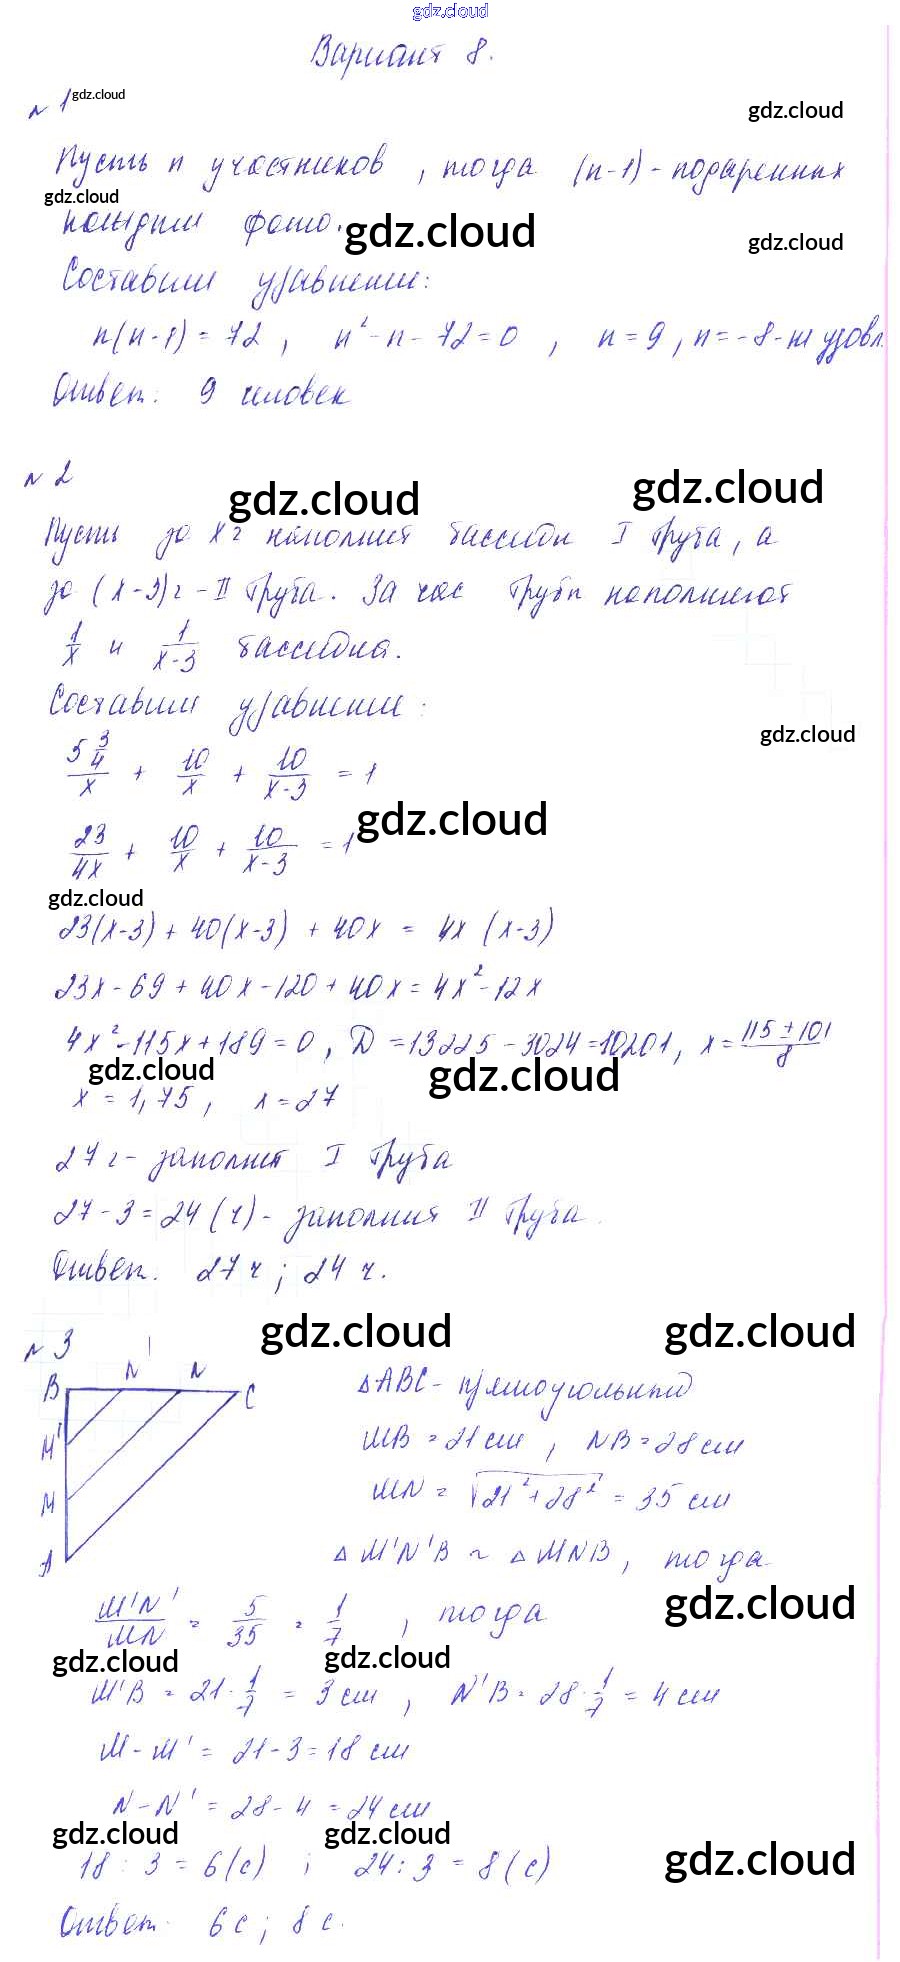 gdz.cloud
Вариант 8.
№ 1 gdz.cloud
gdz.cloud
Пусть n участников, тогда (n-1) - подаренных
gdz.cloud
каждым фото.
gdz.cloud
gdz.cloud
Составим уравнение:
n(n-1) = 72, n² - n - 72 = 0, n = 9, n = -8 - не удовл.
Ответ: 9 человек
№ 2
gdz.cloud
gdz.cloud
Пусть за x ч наполнит бассейн I труба, а
за (x-3) ч - II труба. За час трубы наполняют
1/x и 1/(x-3) бассейна.
Составим уравнение:
gdz.cloud
5 3/4 / x + 10/x + 10/(x-3) = 1
gdz.cloud
23/4x + 10/x + 10/(x-3) = 1
gdz.cloud
23(x-3) + 40(x-3) + 40x = 4x(x-3)
23x - 69 + 40x - 120 + 40x = 4x² - 12x
4x² - 115x + 189 = 0, D = 13225 - 3024 = 10201, x = (115 ± 101)/8
gdz.cloud
gdz.cloud
x = 1,75, x = 27
27 ч - заполнит I труба
27 - 3 = 24 (ч) - заполнит II труба.
Ответ: 27 ч; 24 ч.
gdz.cloud
gdz.cloud
№ 3
B N' N C
M'
M
A
△ABC - прямоугольный
MB = 21 см, NB = 28 см
MN = √(21² + 28²) = 35 см
△M'N'B ~ △MNB, тогда
gdz.cloud
M'N'/MN = 5/35 = 1/7, тогда
gdz.cloud
gdz.cloud
M'B = 21 · 1/7 = 3 см, N'B = 28 · 1/7 = 4 см
M - M' = 21 - 3 = 18 см
N - N' = 28 - 4 = 24 см
gdz.cloud
gdz.cloud
gdz.cloud
18 : 3 = 6 (с); 24 : 3 = 8 (с)
Ответ: 6 с; 8 с.